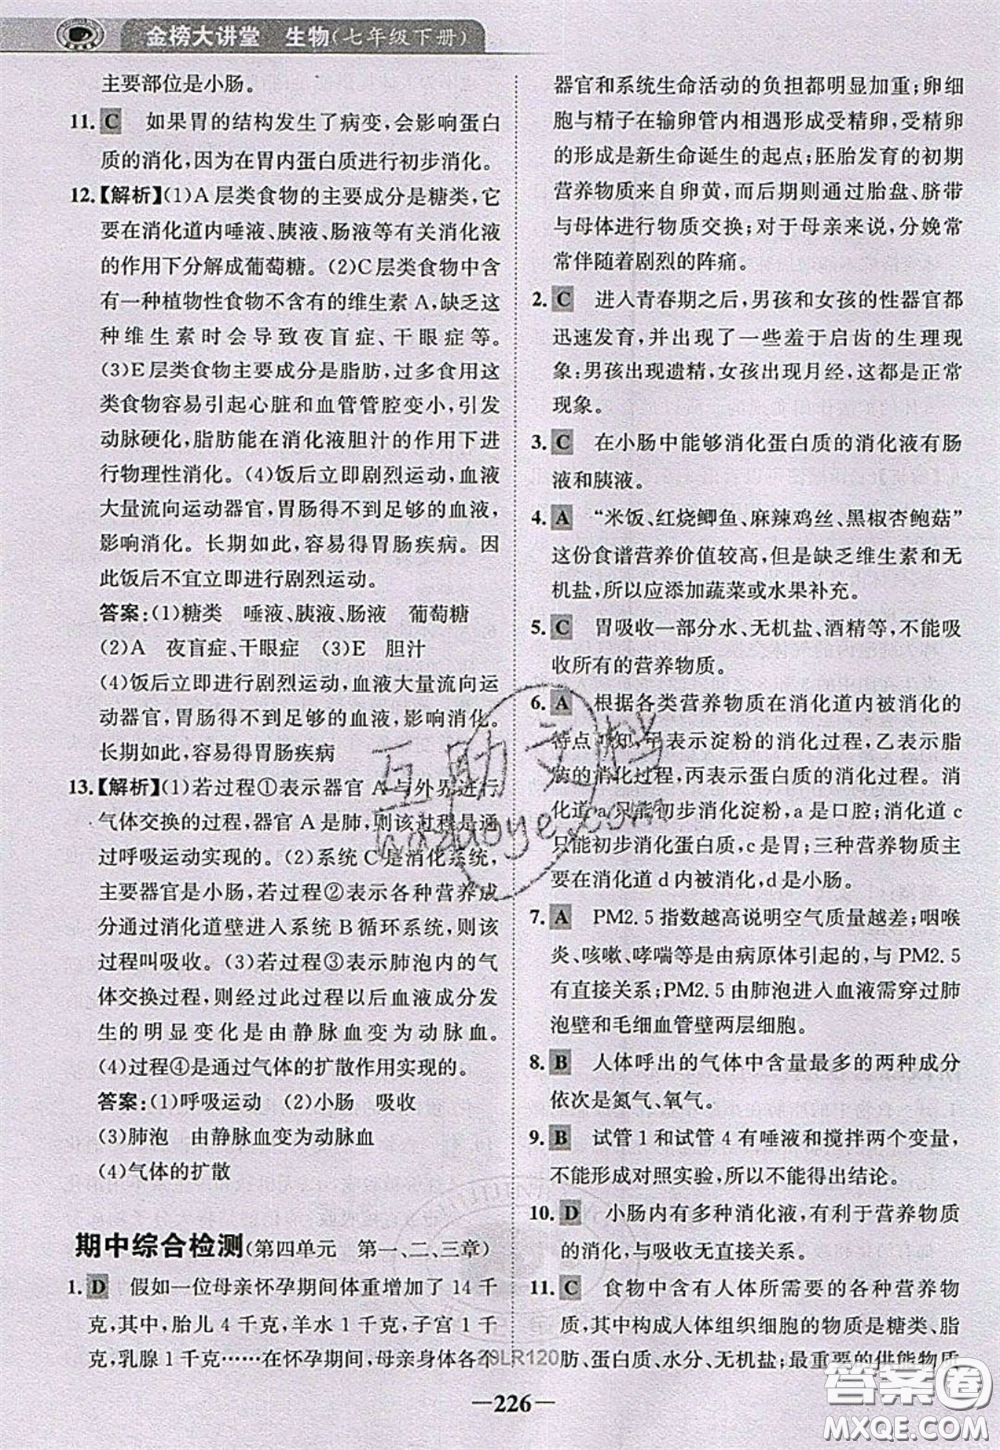 金榜大讲堂 生物(七年级下册)
主要部位是小肠。
11. C 如果胃的结构发生了病变,会影响蛋白
质的消化,因为在胃内蛋白质进行初步消化。
12.【解析】(1)A层类食物的主要成分是糖类,它
要在消化道内唾液、胰液、肠液等有关消化液
的作用下分解成葡萄糖。(2)C层类食物中含
有一种植物性食物的维生素A,缺乏这
种维生素时会导致夜盲症、干眼症等。
(3)E层类食物主要成分是脂肪,过多食用这
类食物容易引起心脏和血管管腔变小,引发
动脉硬化,脂肪能在消化液胆汁的作用下进
行物理性消化。(4)饭后立即剧烈运动,血液
大量流向运动器官,胃肠得不到足够的血液,
影响消化。长期如此,容易得胃肠疾病。因
此饭后不宜立即进行剧烈运动。
答案:(1)糖类 唾液、胰液、肠液 葡萄糖
(2)A 夜盲症、干眼症 (3)E 胆汁
(4)饭后立即进行剧烈运动,血液大量流向运
动器官,胃肠得不到足够的血液,影响消化。
长期如此,容易得胃肠疾病
13.【解析】(1)若过程①表示器官A与外界进行
气体交换的过程,器官A是肺,则该过程是通
过呼吸运动实现的。(2)系统C是消化系统,
主要器官是小肠,若过程②表示各种营养成
分通过消化道壁进入系统B循环系统,则该
过程叫吸收。(3)若过程③表示肺泡内的气
体交换过程,则该过程以后血液成分发生
的明显变化是由静脉血变为动脉血。
(4)过程④是通过气体的扩散作用实现的。
答案:(1)呼吸运动 (2)小肠 吸收
(3)肺泡 由静脉血变为动脉血
(4)气体的扩散
期中综合检测(第四单元 第一、二、三章)
1. D 假如一位母亲怀孕期间体重增加了14千
克,其中,胎儿4千克,羊水1千克,子宫1千
克,乳腺1千克……在怀孕期间,母亲身体各个
器官和系统生命活动的负担都明显加重;卵细
胞与精子在输卵管内相遇形成受精卵,受精卵
的形成是新生命诞生的起点;胚胎发育的初期
营养物质来自卵黄,而后期则通过胎盘、脐带
与母体进行物质交换;对于母亲来说,分娩常
常伴随着剧烈的阵痛。
2. C 进入青春期之后,男孩和女孩的性器官都
迅速发育,并出现了一些羞于启齿的生理现
象。男孩出现遗精,女孩出现月经,这都是正常
现象。
3. C 在小肠中能够消化蛋白质的消化液有肠
液和胰液。
4. A “米饭、红烧鲫鱼、麻辣鸡丝、黑椒杏鲍菇”
这份食谱营养价值较高,但是缺乏维生素和无
机盐,所以应添加蔬菜或水果补充。
5. C 胃吸收一部分水、无机盐、酒精等,不能吸
收所有的营养物质。
6. A 根据各类营养物质在消化道内被消化的
特点可知,甲表示淀粉的消化过程,乙表示脂
肪的消化过程,丙表示蛋白质的消化过程。
消化道a只能初步消化淀粉,a是口腔;消化道c
只能初步消化蛋白质,c是胃;三种营养物质主
要在消化道d内被消化,d是小肠。
7. A PM2.5指数越高说明空气质量越差;咽喉
炎、咳嗽、哮喘等是由病原体引起的,与PM2.5
有直接关系;PM2.5由肺泡进入血液需穿过肺
泡壁和毛细血管壁两层细胞。
8. B 人体呼出的气体中含量最多的两种成分
依次是氮气、氧气。
9. B 试管1和试管4有唾液和搅拌两个变量,
不能形成对照实验,所以不能得出结论。
10. D 小肠内有多种消化液,有利于营养物质
的消化,与吸收无直接关系。
11. C 食物中含有人体所需要的各种营养物
质,其中构成人体组织细胞的物质是糖类、蛋
白质、脂肪、水、无机盐;最重要的供能物质
互助文档
huzuoye.com
29LR120
226
答案圈
MXQE.COM